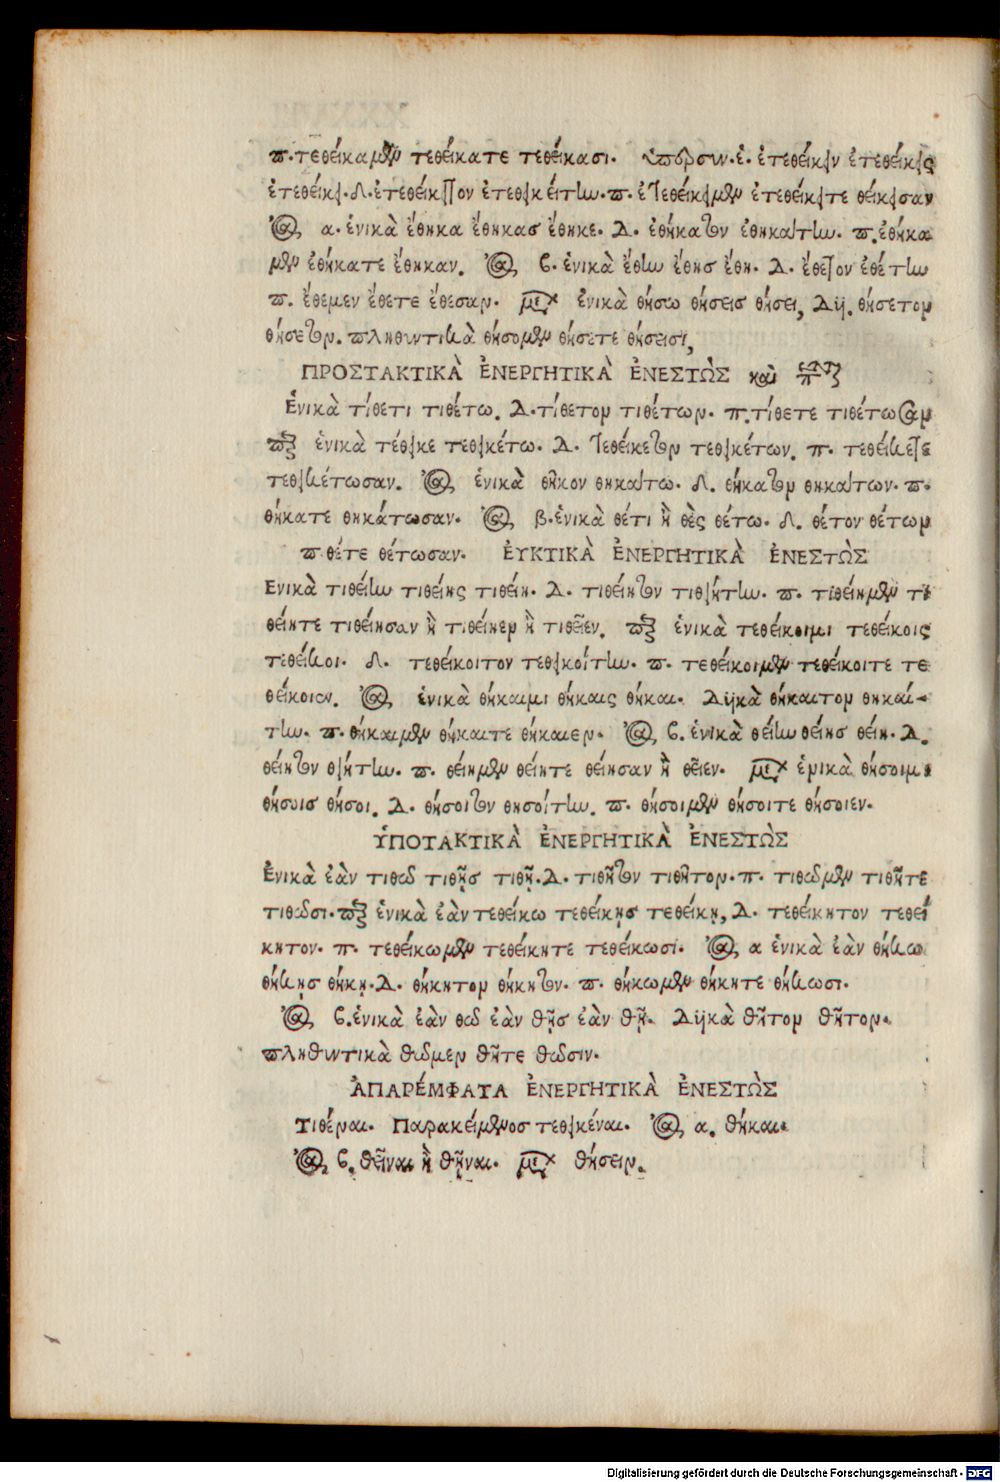 π. τεθείκαμεν τεθείκατε τεθείκασι. ὑπερσυν. ἑ. ἐτεθείκειν ἐτεθείκεις
ἐτεθείκει. Δ. ἐτεθείκειτον ἐτεθεικείτην. π. ἐτεθείκειμεν ἐτεθείκειτε θείκεισαν
ἀό, α. ἑνικὰ ἔθηκα ἔθηκασ ἔθηκε. Δ. ἐθήκατον ἐθηκάτην. π. ἐθήκα
μεν ἐθήκατε ἔθηκαν. ἀό, β. ἑνικὰ ἔθην ἔθησ ἔθη. Δ. ἔθετον ἐθέτην
π. ἔθεμεν ἔθετε ἔθεσαν. μελ ἑνικὰ θήσω θήσεισ θήσει, Δϋ. θήσετον
θήσετον. πληθυντικὰ θήσομεν θήσετε θήσεισι,
ΠΡΟΣΤΑΚΤΙΚᾺ ἘΝΕΡΓΗΤΙΚᾺ ἘΝΕΣΤῺΣ καὶ
Ἑνικὰ τίθετι τιθέτω. Δ. τίθετον τιθέτων. π. τίθετε τιθέτωσαν
πξ ἑνικὰ τέθεικε τεθεικέτω. Δ. τεθείκετον τεθεικέτων. π. τεθείκετε
τεθεικέτωσαν. ἀό, ἑνικὰ θῆκον θηκάτω. Δ. θήκατον θηκάτων. π.
θήκατε θηκάτωσαν. ἀό, β. ἑνικὰ θέτι ἢ θὲς θέτω. Δ. θέτον θέτων
π θέτε θέτωσαν. ἘΥΚΤΙΚᾺ ἘΝΕΡΓΗΤΙΚᾺ ἘΝΕΣΤῺΣ
Ενικὰ τιθείην τιθείης τιθείη. Δ. τιθείητον τιθειήτην. π. τιθείημεν τι
θείητε τιθείησαν ἢ τιθείηεν ἢ τιθεῖεν. πξ ἑνικὰ τεθείκοιμι τεθείκοις
τεθείκοι. Δ. τεθείκοιτον τεθεικοίτην. π. τεθείκοιμεν τεθείκοιτε τε
θείκοιεν. ἀό, ἑνικὰ θήκαιμι θήκαις θήκαι. Δϋκὰ θήκαιτον θηκαί-
την. π. θήκαιμεν θήκαιτε θήκαιεν. ἀό, β. ἑνικὰ θείην θείησ θείη. Δ.
θείητον θειήτην. π. θείημεν θείητε θείησαν ἢ θεῖεν. μελ ἑνικὰ θήσοιμι
θήσοισ θήσοι. Δ. θήσοιτον θησοίτην. π. θήσοιμεν θήσοιτε θήσοιεν.
ὙΠΟΤΑΚΤΙΚᾺ ἘΝΕΡΓΗΤΙΚᾺ ἘΝΕΣΤῺΣ
Ἑνικὰ ἐὰν τιθῶ τιθῇσ τιθῇ. Δ. τιθῆτον τιθῆτον. π. τιθῶμεν τιθῆτε
τιθῶσι. πξ ἑνικὰ ἐὰν τεθείκω τεθείκῃσ τεθείκῃ, Δ. τεθείκητον τεθεί
κητον. π. τεθείκωμεν τεθείκητε τεθείκωσι. ἀό, α ἑνικὰ ἐὰν θήκω
θήκῃσ θήκῃ. Δ. θήκητον θήκητον. π. θήκωμεν θήκητε θήκωσι.
ἀό, β. ἑνικὰ ἐὰν θῶ ἐὰν θῇσ ἐὰν θῇ. Δϋκὰ θῆτον θῆτον.
πληθυντικὰ θῶμεν θῆτε θῶσιν.
ἈΠΑΡΈΜΦΑΤΑ ἘΝΕΡΓΗΤΙΚᾺ ἘΝΕΣΤῺΣ
Τιθέναι. Παρακείμενοσ τεθεικέναι. ἀό, α. θήκαι.
ἀό, β. θεῖναι ἢ θῆναι. μελ θήσειν.
Digitalisierung gefördert durch die Deutsche Forschungsgemeinschaft - DFG